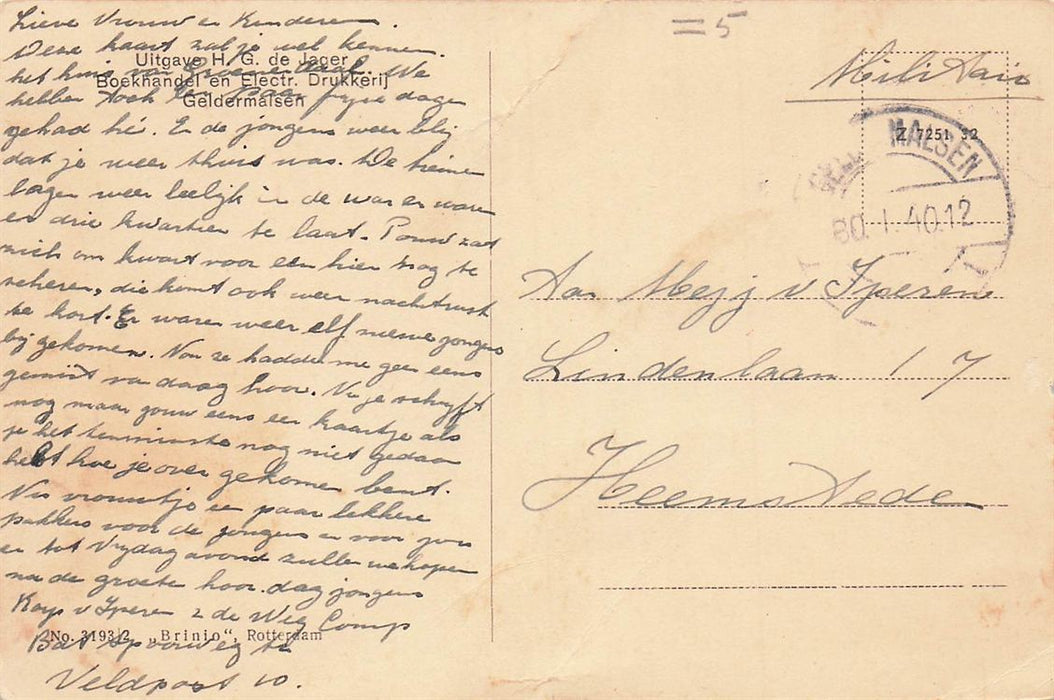 Lieve Vrouw en Kinderen.
Deze kaart zal je wel kennen.
het huis van Groenendaal. We
hebben toch een paar fijne dagen
gehad hé. En de jongens weer blij
dat je weer thuis was. De treinen
lagen weer leelijk in de war en waren
en drie kwartier te laat. Pouw zat
mich om kwart voor een hier nog te
scheren, die komt ook weer nachtrust
te kort. Er waren weer elf nieuwe jongens
bij gekomen. Nou ze hadden me geen eens
gemist vandaag hoor. Nu je schrijft
nog maar gouw eens een kaartje als
je het tenminste nog niet gedaan
hebt hoe je over gekomen bent.
Nu vrouwtje een paar lekkere
pakkers voor de jongens en voor jou
en tot Vrijdagavond zullen we hopen
na de groete hoor. dag jongens
Kop v Iperen 2 de Weg Comp
Bat Spoorweg tr
Veldpost 10.
Uitgave H. G. de Jager
Boekhandel en Electr. Drukkerij
Geldermalsen
No. 3193/2 „Brinio", Rotterdam
= 5
Militair
Z 7251 32
MALSEN
30.1.40.12
Aan Mejj v Iperen
Lindenlaan 17
Heemstede